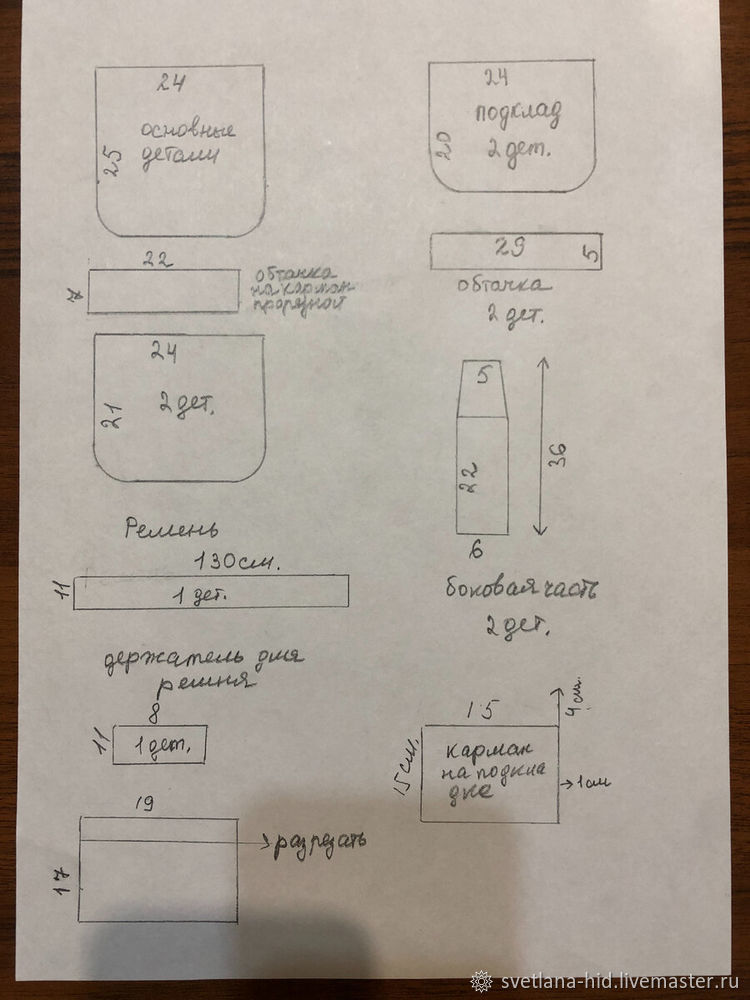 24
25
основные
детали
22
7
обтачка
на карман
прорезной
24
21
2 дет.
Ремень
130 см.
11
1 дет.
держатель для
ремня
8
11
1 дет.
19
17
разрезать
24
20
подклад
2 дет.
29
5
обтачка
2 дет.
5
22
36
6
боковая часть
2 дет.
15
4 см.
15 см.
карман
на подкла
дке
1 см
svetlana-hid.livemaster.ru